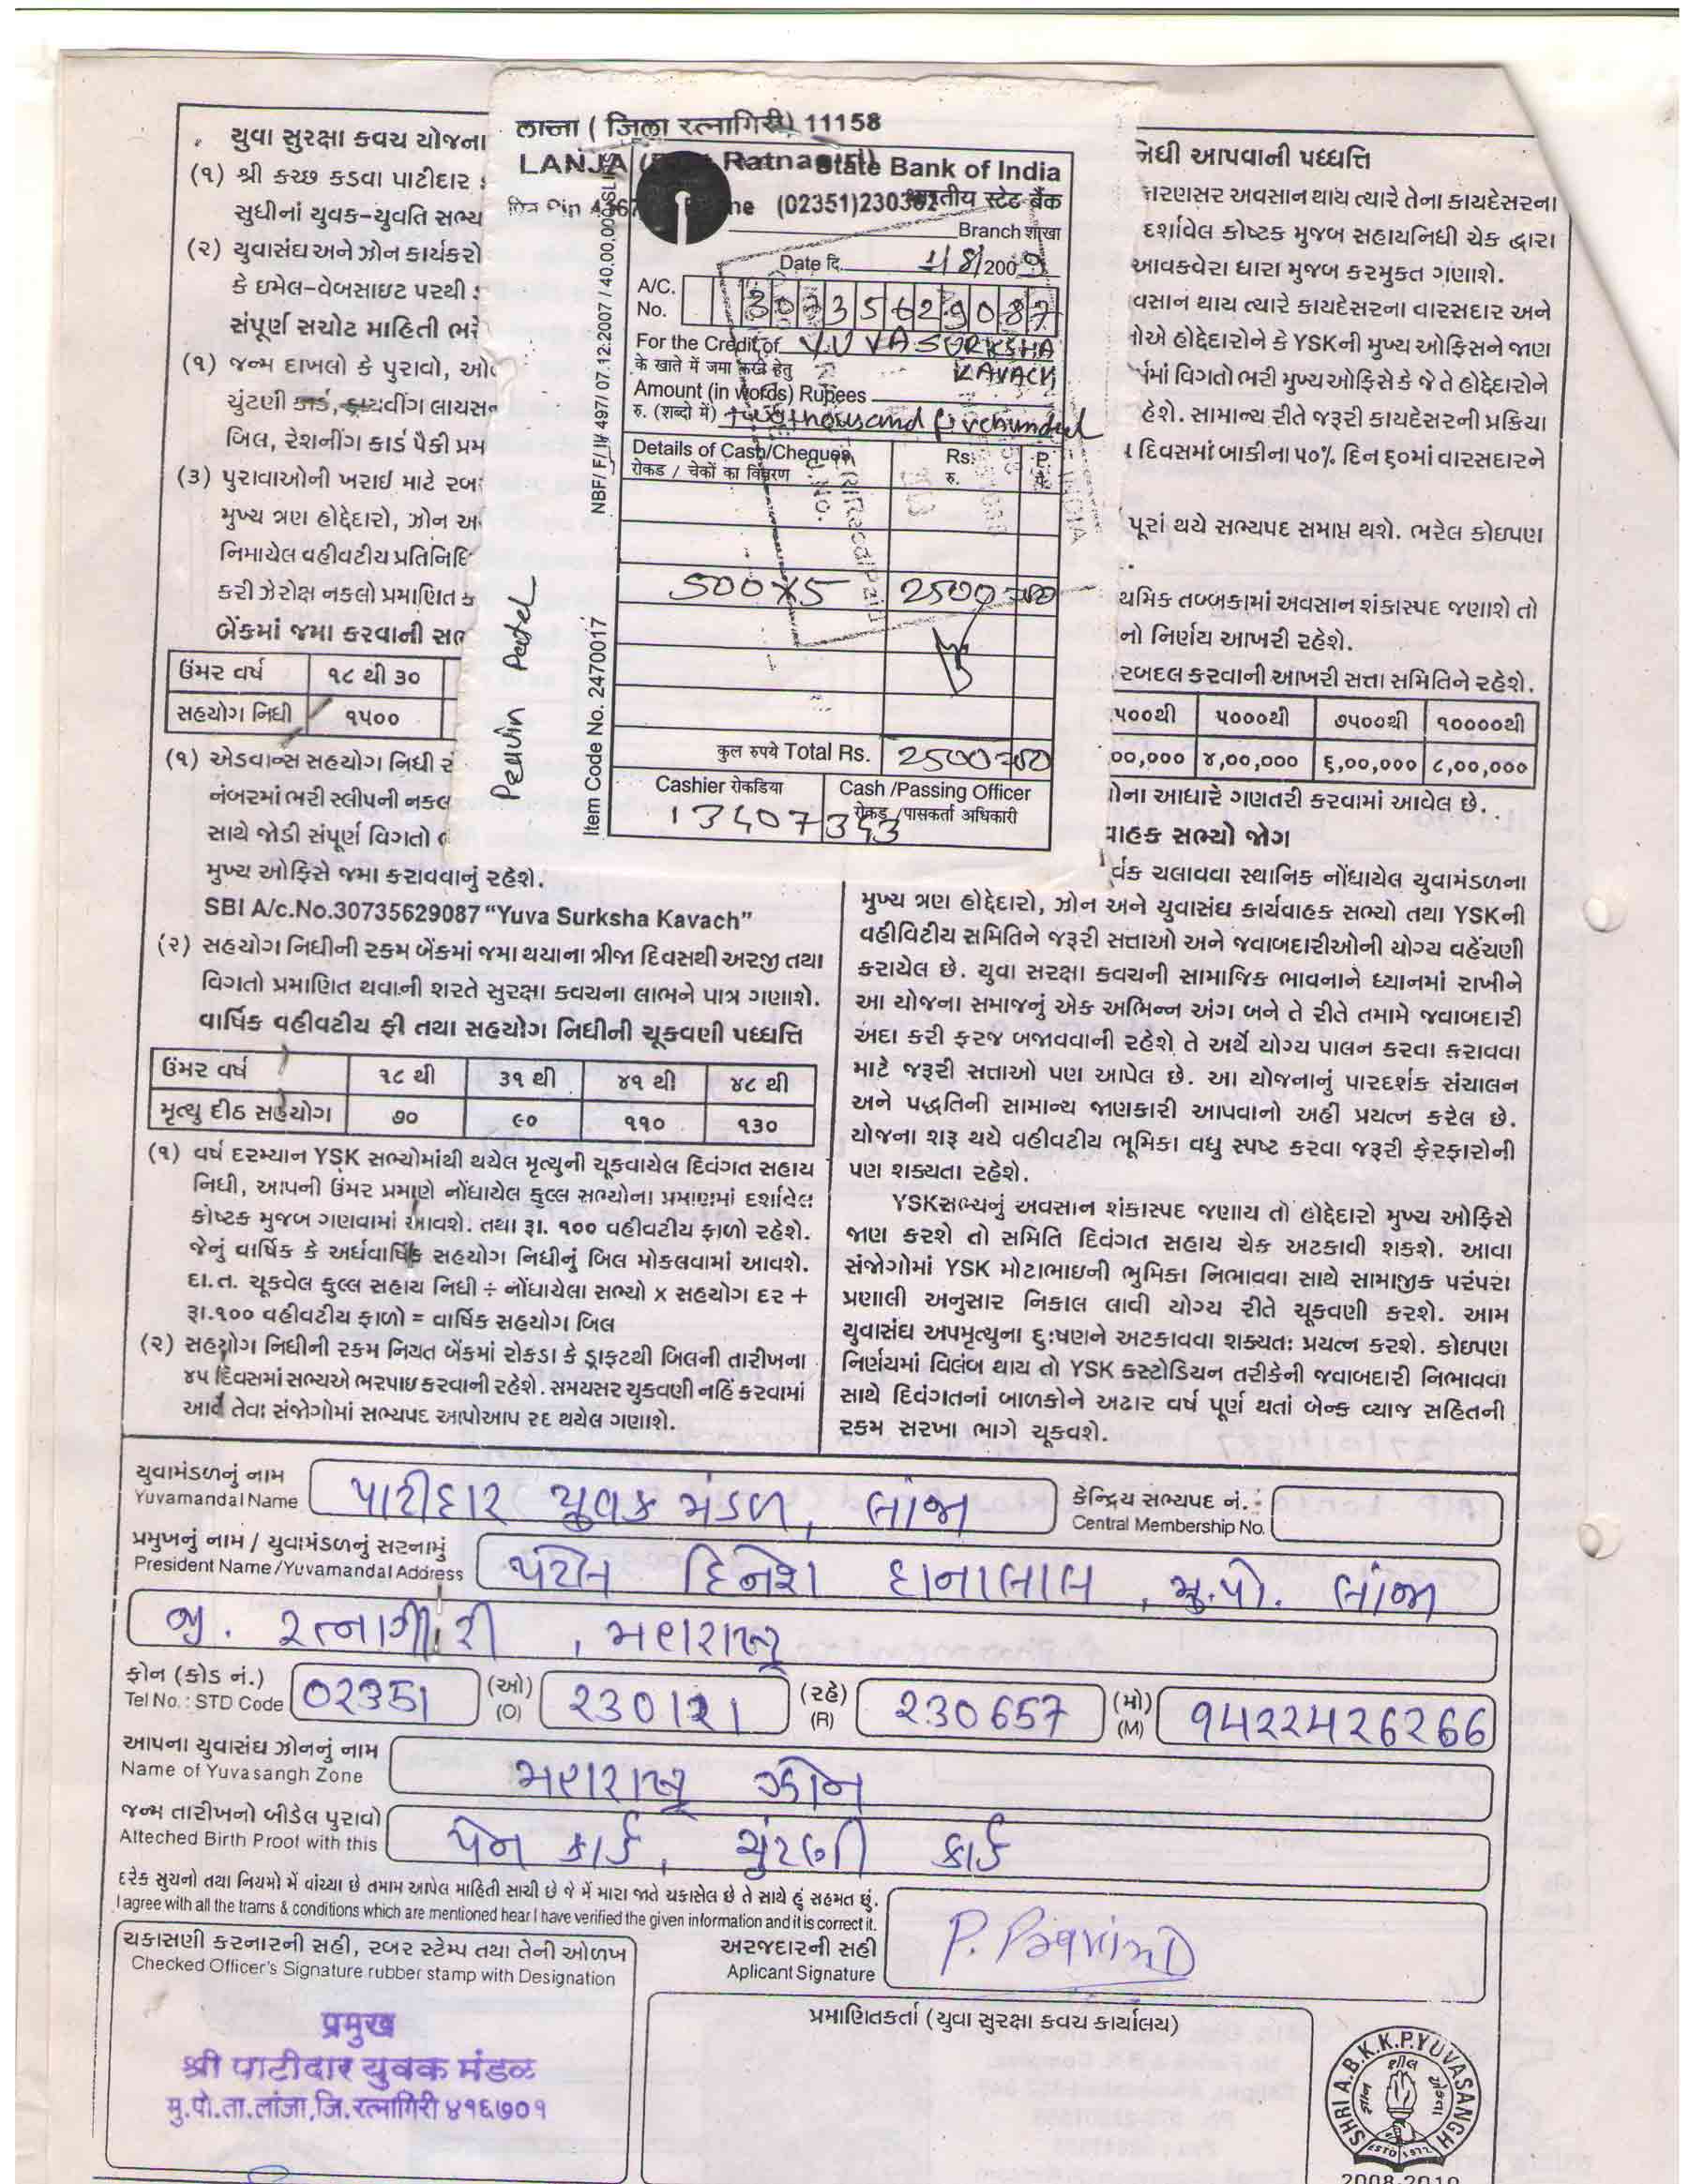 યુવા સુરક્ષા કવચ યોજના
(૧) શ્રી કચ્છ કડવા પાટીદાર
સુધીનાં યુવક-યુવતિ સભ્ય
(૨) યુવાસંઘ અને ઝોન કાર્યકરો
કે ઇમેલ-વેબસાઇટ પરથી
સંપૂર્ણ સચોટ માહિતી ભરે
(૧) જન્મ દાખલો કે પુરાવો,
ચુંટણી કાર્ડ, ડ્રાયવીંગ લાયસન
બિલ, રેશનીંગ કાર્ડ પૈકી પ્રમ
(૩) પુરાવાઓની ખરાઇ માટે રબ
મુખ્ય ત્રણ હોદ્દેદારો, ઝોન અ
નિમાયેલ વહીવટીય પ્રતિનિધિ
કરી ઝેરોક્ષ નકલો પ્રમાણિત ક
બેંકમાં જમા કરવાની સભ
ઉંમર વર્ષ ૧૮ થી ૩૦
સહયોગ નિધી ૧૫૦૦
(૧) એડવાન્સ સહયોગ નિધી
નંબરમાં ભરી સ્લીપની નકલ
સાથે જોડી સંપૂર્ણ વિગતો
મુખ્ય ઓફિસે જમા કરાવવાનું રહેશે.
SBI A/c.No.30735629087 "Yuva Surksha Kavach"
(૨) સહયોગ નિધીની રકમ બેંકમાં જમા થયાના ત્રીજા દિવસથી અરજી તથા
વિગતો પ્રમાણિત થવાની શરતે સુરક્ષા કવચના લાભને પાત્ર ગણાશે.
વાર્ષિક વહીવટીય ફી તથા સહયોગ નિધીની ચૂકવણી પધ્ધતિ
ઉંમર વર્ષ ૧૮ થી ૩૧ થી ૪૧ થી ૪૮ થી
મૃત્યુ દીઠ સહયોગ ૭૦ ૯૦ ૧૧૦ ૧૩૦
(૧) વર્ષ દરમ્યાન YSK સભ્યોમાંથી થયેલ મૃત્યુની ચૂકવાયેલ દિવંગત સહાય
નિધી, આપની ઉંમર પ્રમાણે નોંધાયેલ કુલ્લ સભ્યોના પ્રમાણમાં દર્શાવેલ
કોષ્ટક મુજબ ગણવામાં આવશે. તથા રૂા. ૧૦૦ વહીવટીય ફાળો રહેશે.
જેનું વાર્ષિક કે અર્ધવાર્ષિક સહયોગ નિધીનું બિલ મોકલવામાં આવશે.
દા.ત. ચૂકવેલ કુલ્લ સહાય નિધી ÷ નોંધાયેલા સભ્યો x સહયોગ દર +
રૂા.૧૦૦ વહીવટીય ફાળો = વાર્ષિક સહયોગ બિલ
(૨) સહયોગ નિધીની રકમ નિયત બેંકમાં રોકડા કે ડ્રાફટથી બિલની તારીખના
૪૫ દિવસમાં સભ્યએ ભરપાઇ કરવાની રહેશે. સમયસર ચુકવણી નહિં કરવામાં
આવે તેવા સંજોગોમાં સભ્યપદ આપોઆપ રદ થયેલ ગણાશે.
लान्जा ( जिला रत्नागिरी) 11158
LANJA Ratnagiri)
Phone (02351)230382
State Bank of India
भारतीय स्टेट बैंक
Branch शाखा
Date दि. 1/8/2009
A/C. No. 30735629087
For the Credit of YUVA SURKSHA
के खाते में जमा करने हेतु KAVACH
Amount (in words) Rupees
रु. (शब्दो में) two thousand five hundred
Details of Cash/Cheques Rs. P.
रोकड / चेकों का विवरण रु. पै.
500 X 5 2500=00
कुल रुपये Total Rs. 2500=00
Cashier रोकडिया Cash /Passing Officer
रोकड /पासकर्ता अधिकारी
NBF/F/II/ 497/ 07.12.2007 / 40,00,000 SLIPS
Item Code No. 2470017
નિધી આપવાની પધ્ધતિ
કારણસર અવસાન થાય ત્યારે તેના કાયદેસરના
દર્શાવેલ કોષ્ટક મુજબ સહાયનિધી ચેક દ્વારા
આવકવેરા ધારા મુજબ કરમુકત ગણાશે.
વસાન થાય ત્યારે કાયદેસરના વારસદાર અને
ોએ હોદ્દેદારોને કે YSKની મુખ્ય ઓફિસને જાણ
ર્મમાં વિગતો ભરી મુખ્ય ઓફિસે કે જે તે હોદ્દેદારોને
હેશે. સામાન્ય રીતે જરૂરી કાયદેસરની પ્રક્રિયા
દિવસમાં બાકીના ૫૦% દિન ૬૦માં વારસદારને
પૂરાં થયે સભ્યપદ સમાપ્ત થશે. ભરેલ કોઇપણ
થમિક તબ્બકામાં અવસાન શંકાસ્પદ જણાશે તો
નો નિર્ણય આખરી રહેશે.
રબદલ કરવાની આખરી સત્તા સમિતિને રહેશે.
૫૦૦થી ૫૦૦૦થી ૭૫૦૦થી ૧૦૦૦૦થી
૦૦,૦૦૦ ૪,૦૦,૦૦૦ ૬,૦૦,૦૦૦ ૮,૦૦,૦૦૦
ોના આધારે ગણતરી કરવામાં આવેલ છે.
વાહક સભ્યો જોગ
ર્વક ચલાવવા સ્થાનિક નોંધાયેલ યુવામંડળના
મુખ્ય ત્રણ હોદ્દેદારો, ઝોન અને યુવાસંઘ કાર્યવાહક સભ્યો તથા YSKની
વહીવિટીય સમિતિને જરૂરી સત્તાઓ અને જવાબદારીઓની યોગ્ય વહેંચણી
કરાયેલ છે. યુવા સરક્ષા કવચની સામાજિક ભાવનાને ધ્યાનમાં રાખીને
આ યોજના સમાજનું એક અભિન્ન અંગ બને તે રીતે તમામે જવાબદારી
અદા કરી ફરજ બજાવવાની રહેશે તે અર્થે યોગ્ય પાલન કરવા કરાવવા
માટે જરૂરી સત્તાઓ પણ આપેલ છે. આ યોજનાનું પારદર્શક સંચાલન
અને પદ્ધતિની સામાન્ય જાણકારી આપવાનો અહી પ્રયત્ન કરેલ છે.
યોજના શરૂ થયે વહીવટીય ભૂમિકા વધુ સ્પષ્ટ કરવા જરૂરી ફેરફારોની
પણ શક્યતા રહેશે.
YSKસભ્યનું અવસાન શંકાસ્પદ જણાય તો હોદ્દેદારો મુખ્ય ઓફિસે
જાણ કરશે તો સમિતિ દિવંગત સહાય ચેક અટકાવી શકશે. આવા
સંજોગોમાં YSK મોટાભાઇની ભુમિકા નિભાવવા સાથે સામાજીક પરંપરા
પ્રણાલી અનુસાર નિકાલ લાવી યોગ્ય રીતે ચૂકવણી કરશે. આમ
યુવાસંઘ અપમૃત્યુના દુઃષણને અટકાવવા શક્યતઃ પ્રયત્ન કરશે. કોઇપણ
નિર્ણયમાં વિલંબ થાય તો YSK કસ્ટોડિયન તરીકેની જવાબદારી નિભાવવા
સાથે દિવંગતનાં બાળકોને અઢાર વર્ષ પૂર્ણ થતાં બેન્ક વ્યાજ સહિતની
રકમ સરખા ભાગે ચૂકવશે.
યુવામંડળનું નામ
Yuvamandal Name પાટીદાર યુવક મંડળ, લાંજા
કેન્દ્રિય સભ્યપદ નં.:
Central Membership No.
પ્રમુખનું નામ / યુવામંડળનું સરનામું
President Name/Yuvamandal Address પટેલ દિનેશ દાનાલાલ, મુ.પો. લાંજા
જી. રત્નાગીરી, મહારાષ્ટ્ર
ફોન (કોડ નં.) (ઓ) (રહે) (મો)
Tel No. : STD Code 02351 (O) 230121 (R) 230657 (M) 9422426266
આપના યુવાસંઘ ઝોનનું નામ
Name of Yuvasangh Zone મહારાષ્ટ્ર ઝોન
જન્મ તારીખનો બીડેલ પુરાવો
Atteched Birth Proof with this પેન કાર્ડ, ચુંટણી કાર્ડ
દરેક સુચનો તથા નિયમો મેં વાંચ્યા છે તમામ આપેલ માહિતી સાચી છે જે મેં મારા જાતે ચકાસેલ છે તે સાથે હું સહમત છું.
I agree with all the trams & conditions which are mentioned hear I have verified the given information and it is correct it.
ચકાસણી કરનારની સહી, રબર સ્ટેમ્પ તથા તેની ઓળખ
Checked Officer's Signature rubber stamp with Designation
અરજદારની સહી
Aplicant Signature
પ્રમાણિતકર્તા (યુવા સુરક્ષા કવચ કાર્યાલય)
प्रमुख
श्री पाटीदार युवक मंडळ
मु.पो.ता.लांजा,जि.रत्नागिरी ४१६७०१
SHRI A.B.K.K.P.YUVASANGH
ESTD 1972
2008-2010